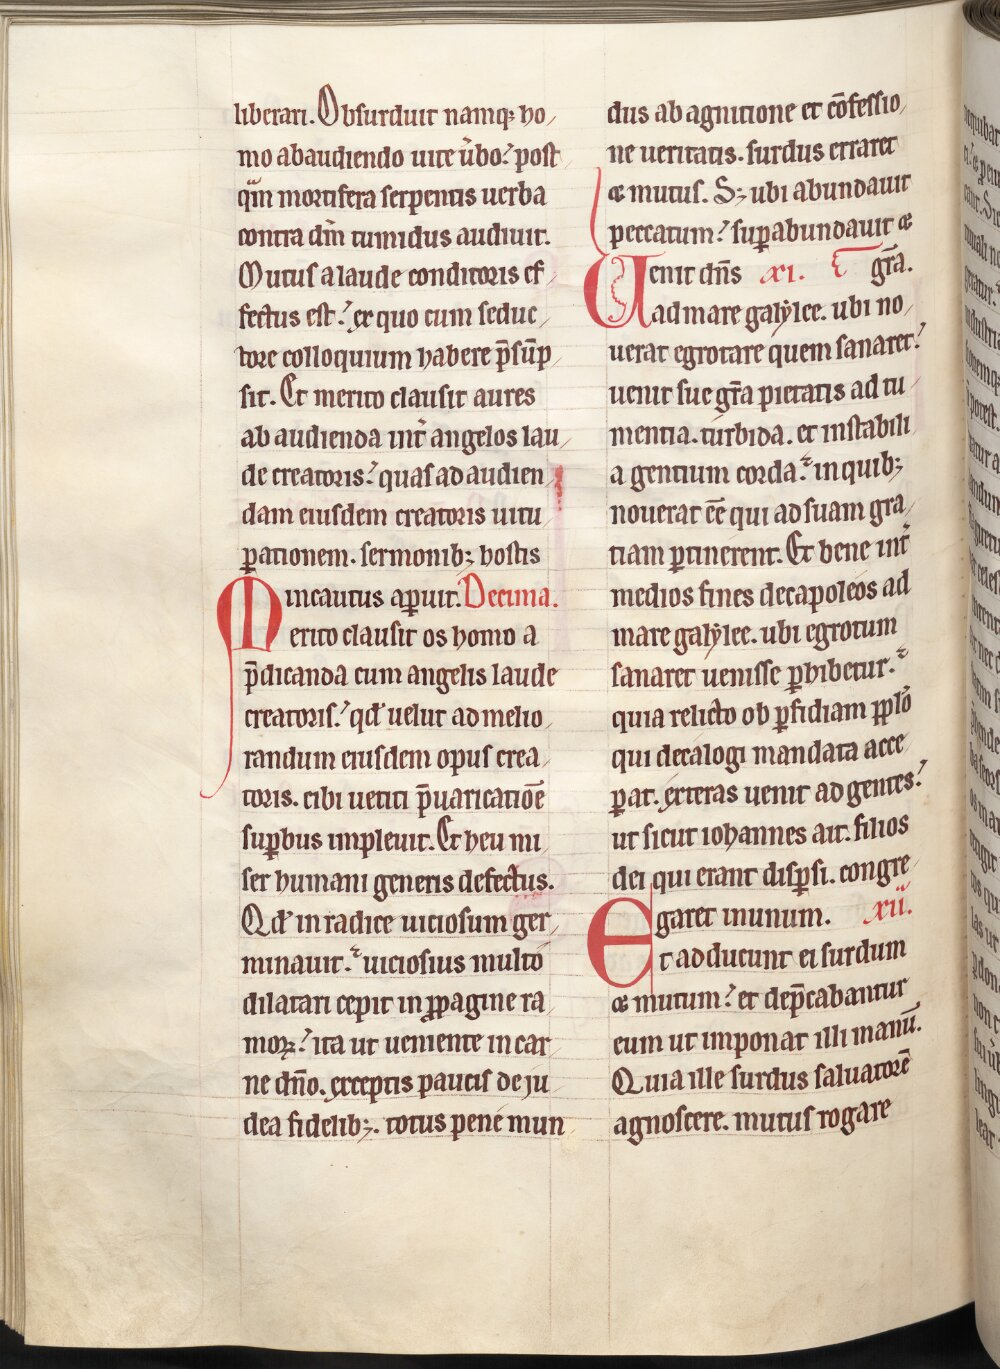 liberari. Obsurduit namq; ho
mo ab audiendo uite ūbo? post
qm̄ mortifera serpentis uerba
contra dm̄ tumidus audiuit.
Mutus a laude conditoris ef
fectus est? ex quo cum seduc
tore colloquium habere p̄sūp
sit. Et merito clausit aures
ab audienda int̄ angelos lau
de creatoris? quas ad audien
dam eiusdem creatoris uitu
ꝑationem. sermonib; hostis
incautus aꝑuit. Decima.
Merito clausit os homo a
p̄dicanda cum angelis laude
creatoris? qđ uelut ad melio
randum eiusdem opus crea
toris. cibi uetiti p̄uaricatiōe
suꝑbus impleuit. Et heu mi
ser humani generis defectus.
Qđ in radice uiciosum ger
minauit. uiciosius multo
dilatari cepit in ꝓpagine ra
moꝝ? ita ut ueniente in car
ne dn̄o. exceptis paucis de ju
dea fidelib;. totus pene mun
dus ab agnitione et cōfessio
ne ueritatis. surdus erraret
& mutus. S; ubi abundauit
peccatum? suꝑabundauit &
gr̄a.
Uenit dn̄s xi.
ad mare galẏlee. ubi no
uerat egrotare quem sanaret?
uenit sue gr̄a pietatis ad tu
mentia. turbida. et instabili
a gentium corda. in quib;
nouerat eē qui ad suam gra
tiam ꝑtinerent. Et bene int̄
medios fines decapoleos ad
mare galẏlee. ubi egrotum
sanaret uenisse ꝑhibetur.
quia relicto ob ꝑfidiam ꝓplo
qui decalogi mandata acce
ꝑat. exteras uenit ad gentes?
ut sicut iohannes ait. filios
dei qui erant disꝑsi. congre
garet in unum. xii.
Et adducunt ei surdum
& mutum? et dep̄cabantur
eum ut imponat illi manū.
Quia ille surdus saluatorē
agnoscere. mutus rogare